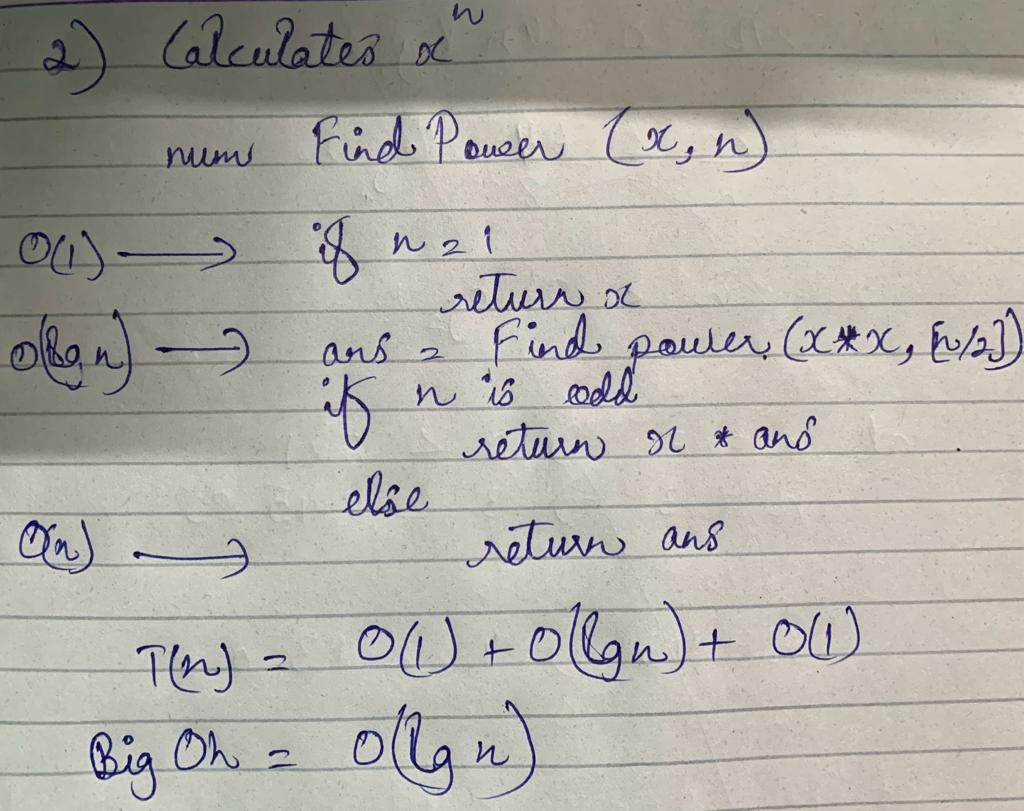 2) Calculates xⁿ
num Find Power (x, n)
O(1) → if n = 1
return x
O(lg n) → ans = Find power (x*x, [n/2])
if n is odd
return x * ans
else
O(n) → return ans
T(n) = O(1) + O(lg n) + O(1)
Big Oh = O(lg n)